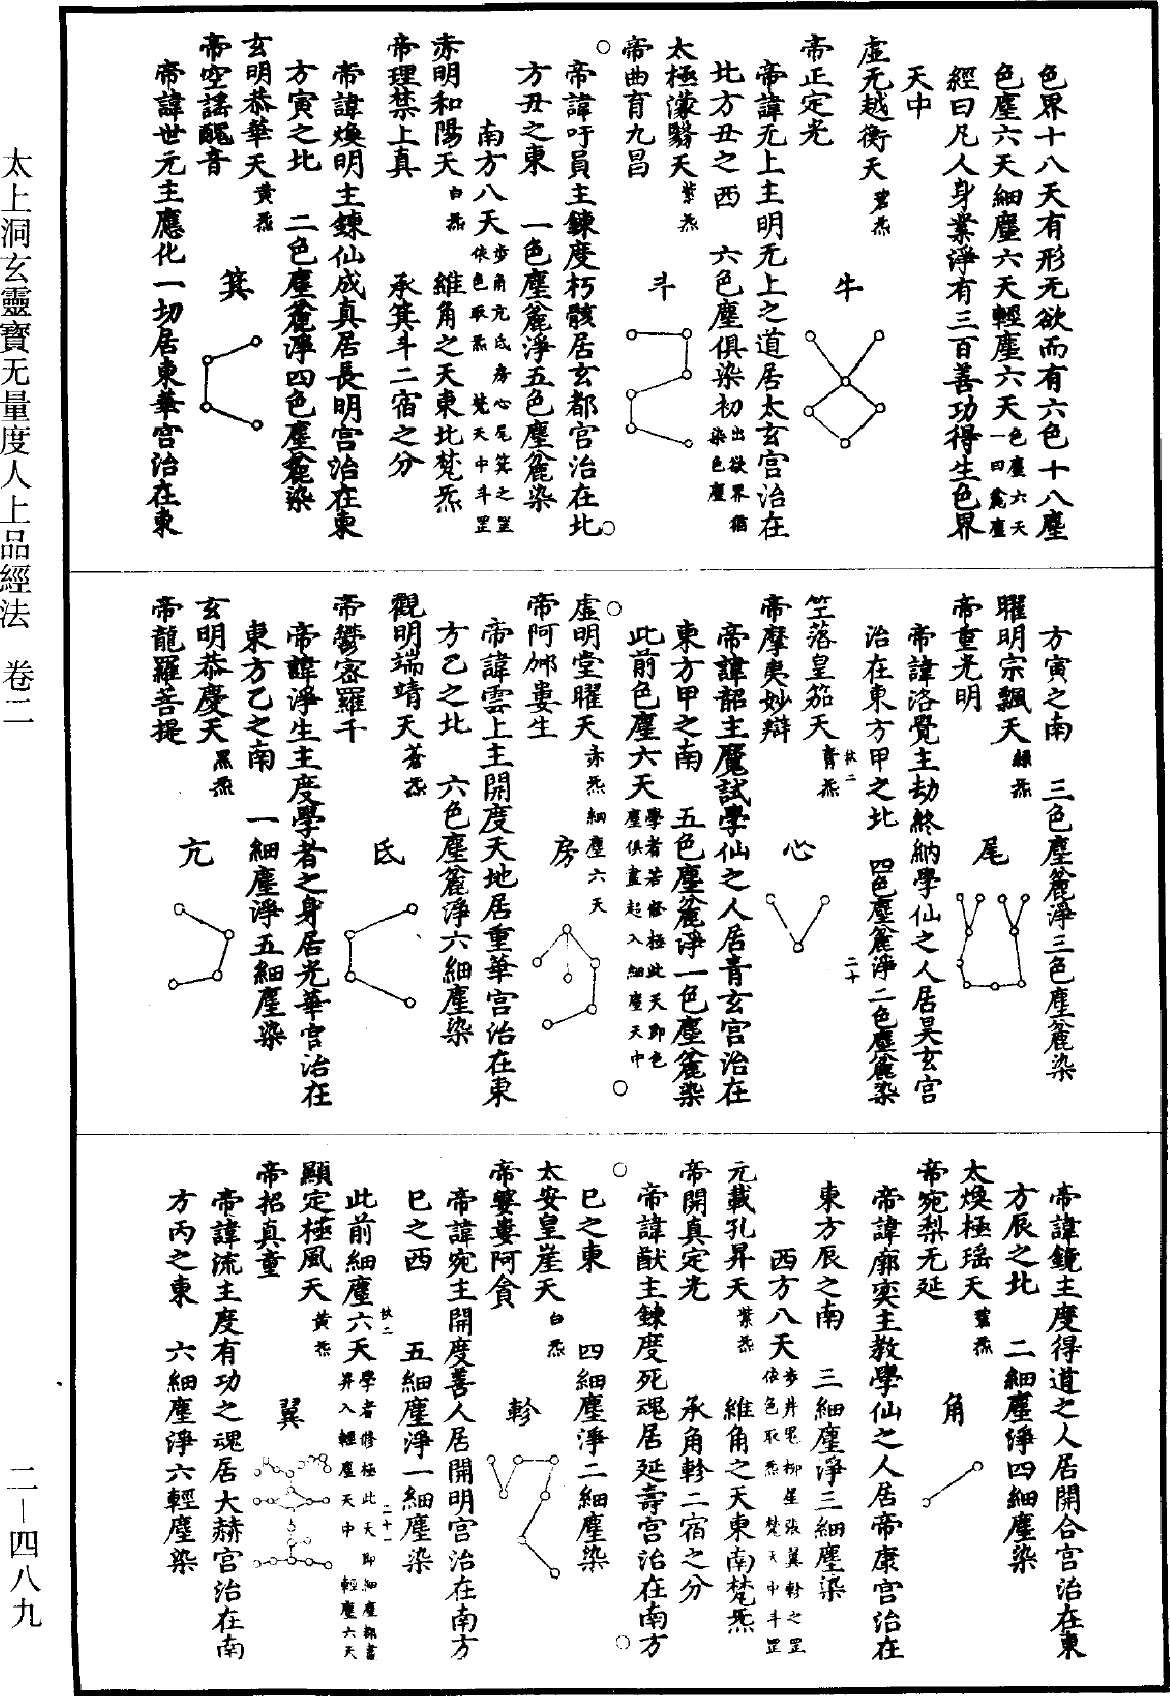 色界十八天有形无欲而有六色十八塵
色塵六天細塵六天輕塵六天色塵六天一曰麄塵
經曰凡人身業淨有三百善功得生色界
天中
虛无越衡天碧炁
牛
帝正定光
帝諱无上主明无上之道居太玄宮治在
北方丑之西　六色塵俱染初出欲界猶染色塵
太極濛翳天紫炁
斗
帝曲育九昌
帝諱吁員主鍊度朽骸居玄都宮治在北
方丑之東　一色塵麄淨五色塵麄染
南方八天步角亢氐房心尾箕之罡依色取炁梵天中斗罡
赤明和陽天白炁　維角之天東北梵炁
帝理禁上真　承箕斗二宿之分
帝諱煥明主鍊仙成真居長明宮治在東
方寅之北　二色塵麄淨四色塵麄染
玄明恭華天黃炁
箕
帝空謠醜音
帝諱世元主應化一切居東華宮治在東
方寅之南　三色塵麄淨三色塵麄染
曜明宗飄天綠炁
尾
帝重光明
帝諱洛覺主劫終納學仙之人居昊玄宮
治在東方甲之北　四色塵麄淨二色塵麄染
扶二　二十
竺落皇笳天青炁
心
帝摩夷妙辯
帝諱韶主魔試學仙之人居青玄宮治在
東方甲之南　五色塵麄淨一色塵麄染
此前色塵六天學者若修極此天即色塵俱盡超入細塵天中
虛明堂曜天赤炁細塵六天
房
帝阿郍婁生
帝諱雲上主開度天地居重華宮治在東
方乙之北　六色塵麄淨六細塵染
觀明端靖天蒼炁
氐
帝鬱密羅千
帝諱淨生主度學者之身居光華宮治在
東方乙之南　一細塵淨五細塵染
玄明恭慶天黑炁
亢
帝龍羅菩提
帝諱鏡主度得道之人居開合宮治在東
方辰之北　二細塵淨四細塵染
太煥極瑤天碧炁
角
帝宛梨无延
帝諱廓奕主教學仙之人居帝康宮治在
東方辰之南　三細塵淨三細塵染
西方八天步井鬼柳星張翼軫之罡依色取炁梵天中斗罡
元載孔昇天紫炁　維角之天東南梵炁
帝開真定光　承角軫二宿之分
帝諱猷主鍊度死魂居延壽宮治在南方
巳之東　四細塵淨二細塵染
太安皇崖天白炁
軫
帝婆婁阿貪
帝諱宛主開度善人居開明宮治在南方
巳之西　五細塵淨一細塵染
扶二　二十一
此前細塵六天學者修極此天即細塵都盡昇入輕塵天中輕塵六天
顯定極風天黃炁
翼
帝招真童
帝諱流主度有功之魂居大赫宮治在南
方丙之東　六細塵淨六輕塵染
太上洞玄靈寶无量度人上品經法　卷二
二—四八九